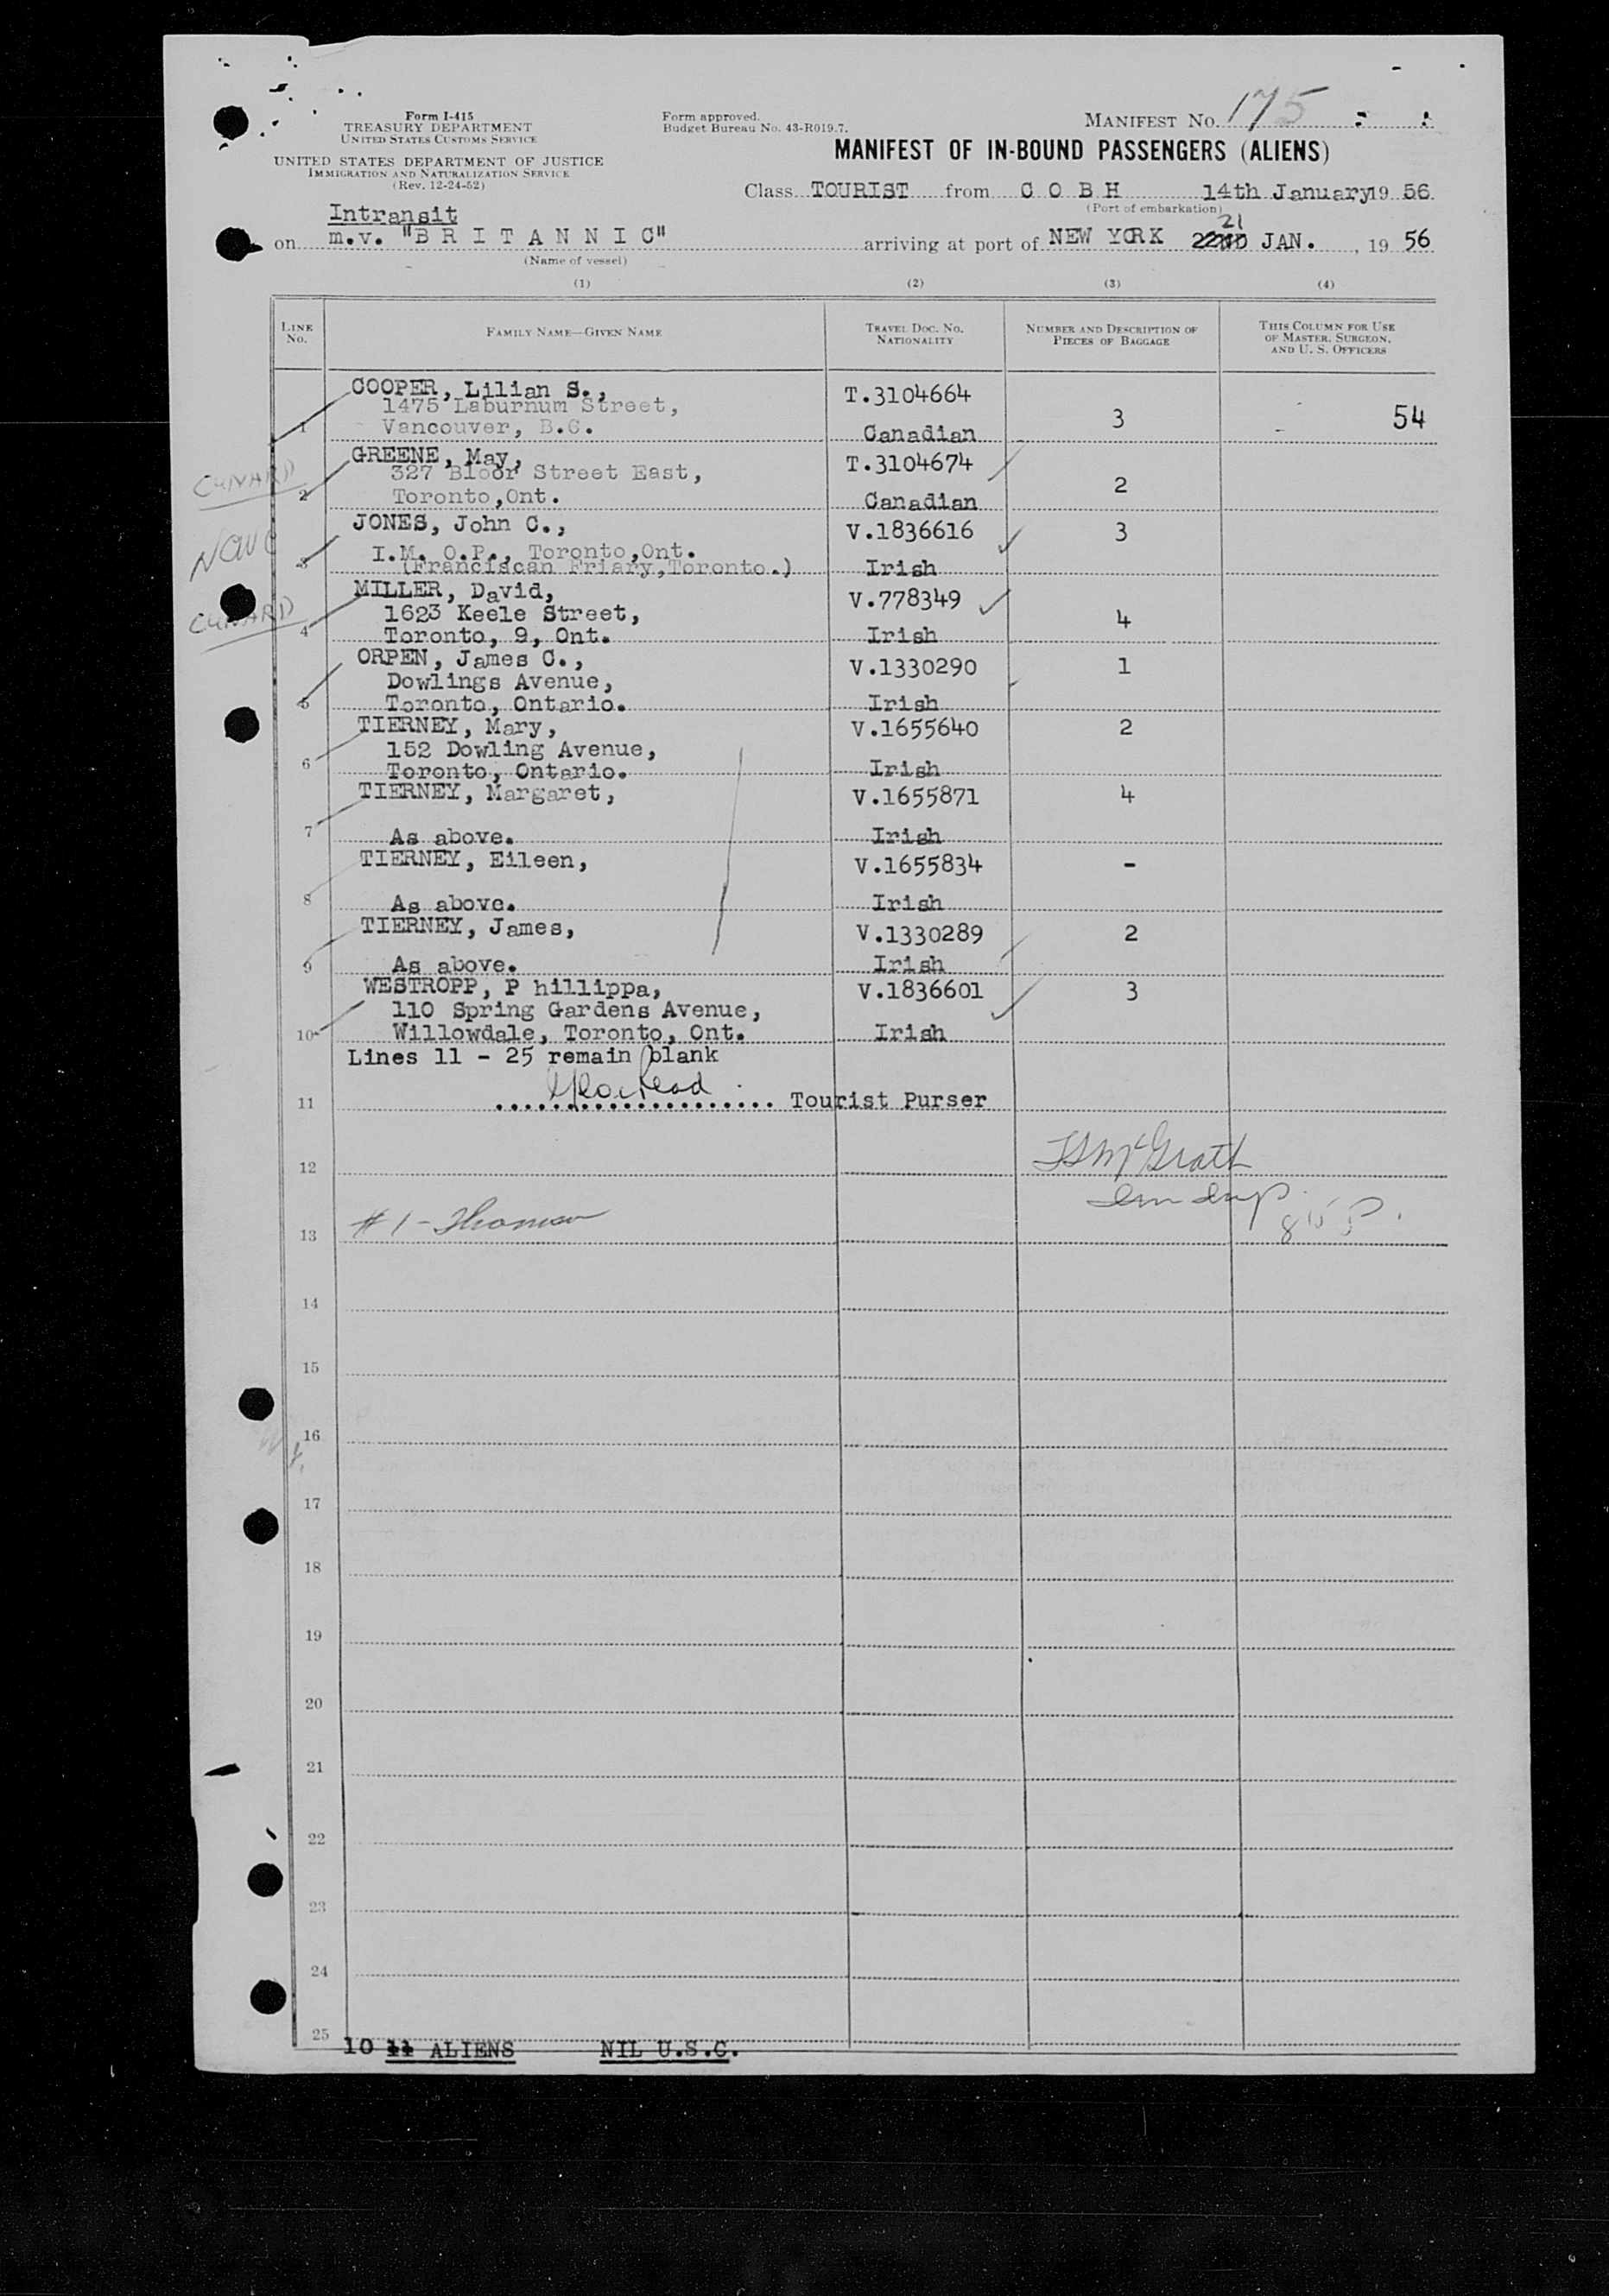 Form I-415
TREASURY DEPARTMENT
UNITED STATES CUSTOMS SERVICE
UNITED STATES DEPARTMENT OF JUSTICE
IMMIGRATION AND NATURALIZATION SERVICE
(Rev. 12-24-52)
Form approved.
Budget Bureau No. 43-R019.7.
MANIFEST No. 175
MANIFEST OF IN-BOUND PASSENGERS (ALIENS)
Class TOURIST from C O B H 14th January 19 56
(Port of embarkation)
Intransit
21
on m.v. "B R I T A N N I C" arriving at port of NEW YORK 22ND JAN., 19 56
(Name of vessel)
(1) (2) (3) (4)
LINE No. FAMILY NAME—GIVEN NAME TRAVEL DOC. NO. NATIONALITY NUMBER AND DESCRIPTION OF PIECES OF BAGGAGE THIS COLUMN FOR USE OF MASTER, SURGEON, AND U. S. OFFICERS
COOPER, Lilian S., T.3104664
1475 Laburnum Street, 3 54
1 Vancouver, B.C. Canadian
GREENE, May, T.3104674
CUNARD 327 Bloor Street East, 2
2 Toronto,Ont. Canadian
JONES, John C., V.1836616 3
I.M. O.P., Toronto,Ont.
3 (Franciscan Friary,Toronto.) Irish
MILLER, David, V.778349
CUNARD 1623 Keele Street, 4
4 Toronto, 9, Ont. Irish
ORPEN, James C., V.1330290 1
Dowlings Avenue,
5 Toronto, Ontario. Irish
TIERNEY, Mary, V.1655640 2
152 Dowling Avenue,
6 Toronto, Ontario. Irish
TIERNEY, Margaret, V.1655871 4
7 As above. Irish
TIERNEY, Eileen, V.1655834 -
8 As above. Irish
TIERNEY, James, V.1330289 2
9 As above. Irish
WESTROPP, P hillippa, V.1836601 3
110 Spring Gardens Avenue,
10 Willowdale, Toronto, Ont. Irish
Lines 11 - 25 remain blank
11 Tourist Purser
12 McGrath
13 # 1 -
14
15
16
17
18
19
20
21
22
23
24
25
10 11 ALIENS NIL U.S.C.